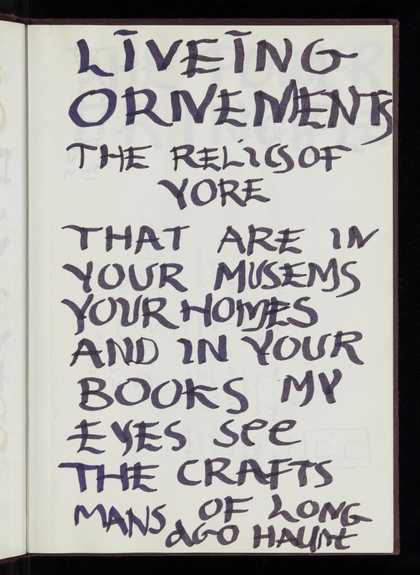 LIVEING
ORNEMENTS
THE RELICS OF
YORE
THAT ARE IN
YOUR MUSEMS
YOUR HOMES
AND IN YOUR
BOOKS MY
EYES SEE
THE CRAFTS
MANS OF LONG
AGO HAUNT